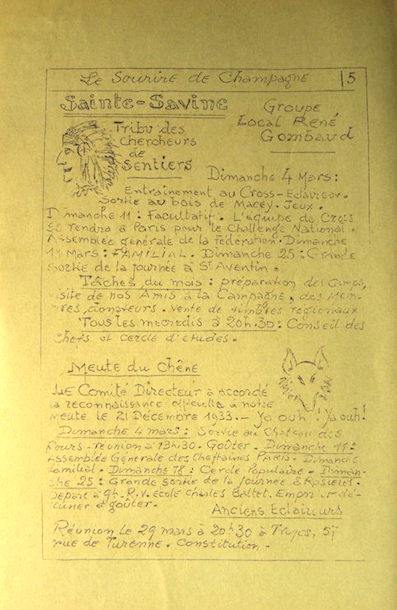 Le Sourire de Champagne 5
Sainte-Savine
Groupe
Local René
Gombaud
Tribu des
Chercheurs
de
Sentiers
Dimanche 4 Mars:
Entrainement au Cross-Eclaireur.
Sortie au bois de Macey. Jeux.
Dimanche 11: Facultatif. L'équipe de Cross
se rendra à Paris pour le Challenge National.
Assemblée générale de la Fédération. Dimanche
Mars: FAMILIAL. Dimanche 25: Grande
sortie de la journée à St Aventin.
Tâches du mois: préparation des Camps,
visite de nos Amis à la Campagne, des Mem-
bres donateurs. Vente de timbres régionaux
Tous les mercredis à 20h.30: Conseil des
chefs et cercle d'études.
Meute du Chêne
LE Comité Directeur a accordé
la reconnaissance officielle à notre
meute le 21 Décembre 1933. Ya ouh! Ya ouh!
Dimanche 4 mars: Sortie au Chateau des
Cours. réunion à 13h30. Goûter. Dimanche 11:
Assemblée Générale des Cheftaines PARIS. Dimanche
familial. Dimanche 18: Cercle Populaire. Diman-
che 25: Grande sortie de la journée à
Départ à 9h. R.V. école Charles Baltet. Emporter dé-
jeuner et goûter.
Anciens Eclaireurs
Réunion le 29 mars à 20h30 à Troyes, 57
rue de Turenne. Constitution.